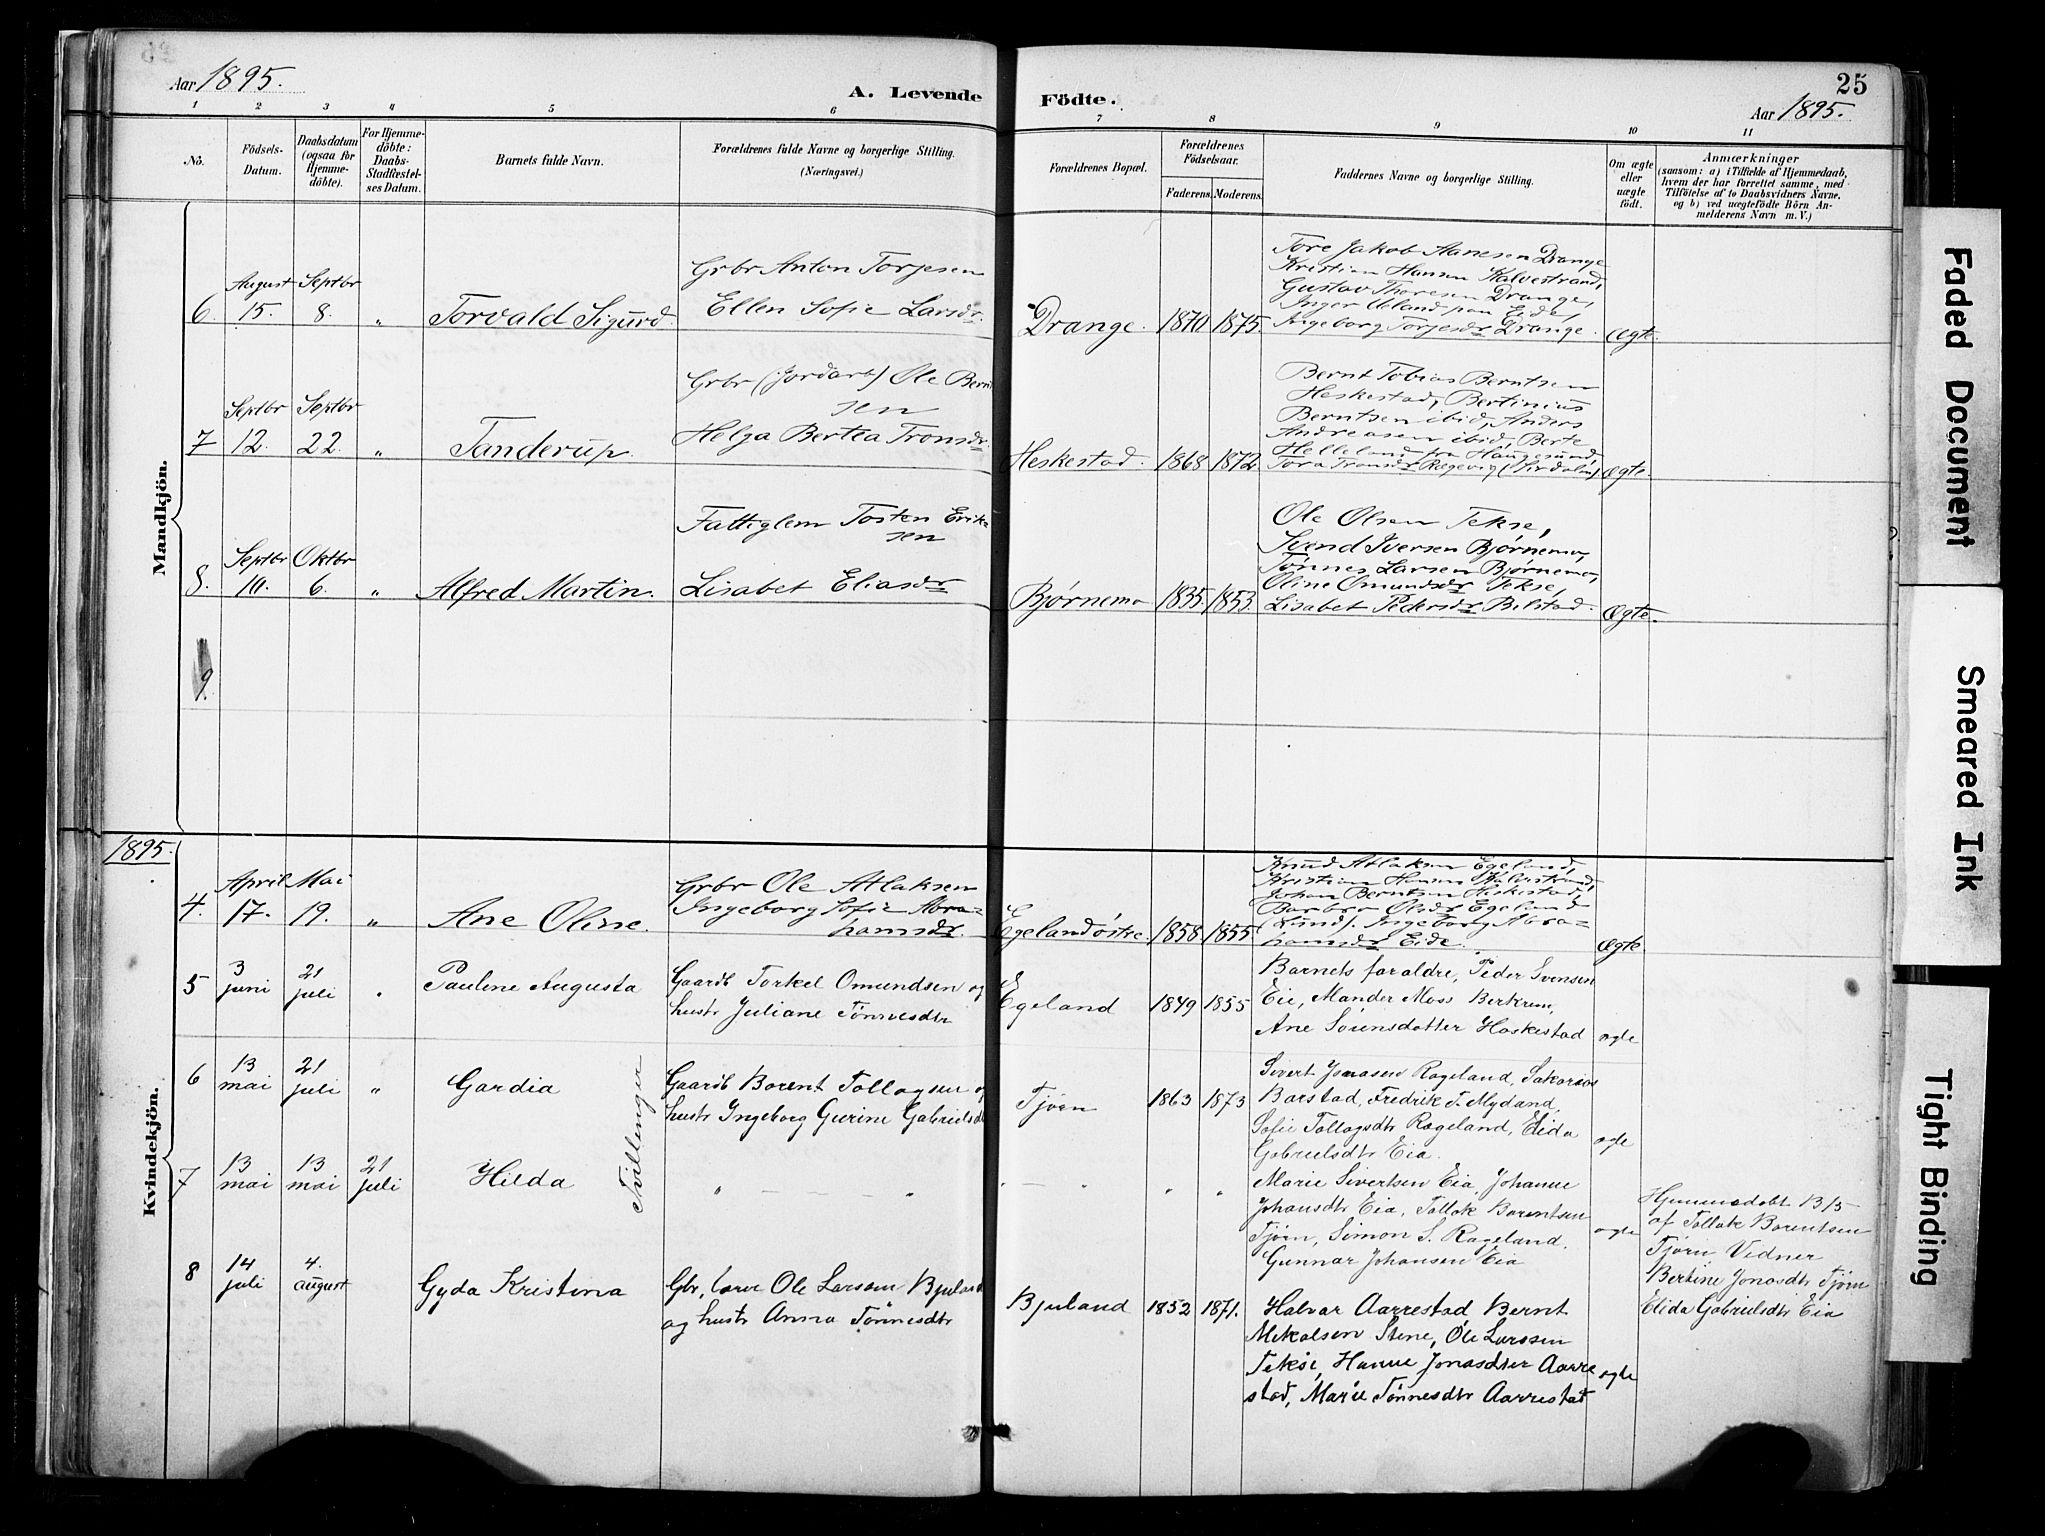 25
Aar 1895.
A. Levende Födte.
Aar 1895.
1 2 3 4 5 6 7 8 9 10 11
No.
Födsels-
Datum.
Daabsdatum
(ogsaa for
Hjemme-
döbte).
For Hjemme-
döbte:
Daabs-
Stadfæstel-
ses Datum.
Barnets fulde Navn.
Forældrenes fulde Navne og borgerlige Stilling.
(Næringsvei.)
Forældrenes Bopæl.
Forældrenes
Födselsaar.
Faderens. Moderens.
Faddernes Navne og borgerlige Stilling.
Om ægte
eller
uægte
födt.
Anmærkninger
(saasom: a) i Tilfælde af Hjemmedaab,
hvem der har forrettet samme, med
Tilföielse af to Daabsvidners Navne.
og b) ved uægtefödte Börn An-
melderens Navn m. V.)
Mandkjön.
6.
August
15.
Septbr
8.
"
Torvald Sigurd.
Grbr Anton Torjesen
Ellen Sofie Larsdr.
Drange.
1870
1875.
Tore Jakob Aanesen Drange
Kristian Hansen Kalvestrand,
Gustav Thoresen Drange,
Inger Ueland paa Eide,
Ingeborg Torjesdr Drange.
Ægte.
7
Septbr
12.
Septbr
22.
"
Tanderup.
Grbr (Jordarb) Ole Bernt
sen
Helga Bertea Tronsdr.
Heskestad.
1868
1872.
Bernt Tobias Berntsen
Heskestad, Bertinius
Berntsen ibid, Anders
Andreasen ibid, Berte
Helleland fra Haugesund,
Tora Tronsdr Rægevig (Sirdalen)
Ægte.
8.
Septbr
10.
Oktbr
6.
"
Alfred Martin.
Fattiglem Tosten Erik-
sen
Lisabet Eliasdr
Bjørnemo
1835.
1853.
Ole Olsen Tekse,
Svend Iversen Bjørnemo,
Tønnes Larsen Bjørnemo,
Oline Omundsdr Tekse,
Lisabet Pedersdr Bilstad.
Ægte.
9.
1895.
Kvindekjön.
4.
April
17.
Mai
19.
"
Ane Oline.
Grbr Ole Atlaksen
Ingeborg Sofie Abra-
hamsdr.
Egeland østre.
1858
1855.
Knud Atlaksen Egeland,
Kristian Hansen Kalvestrand,
Johan Berntsen Heskestad,
Barbro Olsdr Egeland
(Lund). Ingeborg Abra-
hamsdr Eide.
Ægte
5
3
juni
21
juli
"
Pauline Augusta
Gaardb Torkel Omundsen og
hustr Juliane Tønnesdtr
Egeland
1849
1855
Barnets foraldre, Peder Svensen
Eie, Mander Moss Berkrem,
Ane Sørensdatter Haskestad
ægte
6
13
mai
21
juli
"
Gardia
Tvillinger
Gaardb Borent Tollagsen og
hustr Ingeborg Gurine Gabrielsdtr
Tjørn
1863
1873
Sivert Jonasen Rageland, Sakarias
Barstad, Fredrik T. Mydand,
Sofie Tollagsdtr Rageland, Elida
Gabrielsdtr Eia.
ægte
7
13
mai
13
mai
21
juli
Hilda
" — "
" — "
"
"
Marie Sivertsen Eia Johanne
Johansdtr Eia, Tollak Borentsen
Tjørn, Simon S. Rageland.
Gunnar Johansen Eia
ægte
Hjemmedøbt 13/5
af Tollak Borentsen
Tjørn Vidner
Bertine Jonasdtr Tjørn
Elida Gabrielsdtr Eia
8
14
juli
4.
august
Gyda Kristina
Gbr, Ole Larsen Bjuland
og hustr Anna Tønnesdtr
Bjuland
1852
1871.
Halvar Aarrestad Bernt
Mikalsen Stene, Ole Larssen
Tekse, Hanne Jonasdtter Aarre
stad, Marie Tønnesdtr Aarrestad
ægte
Faded Document
Smeared Ink
Tight Binding